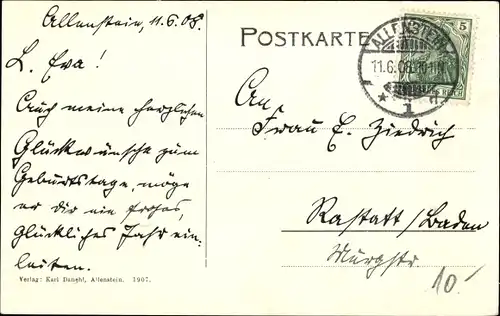 Allenstein, 11.6.08.
L. Eva!
Auch meine herzlichen
Glückwünsche zum
Geburtstage, möge
er dir ein frohes,
glückliches Jahr ein-
leiten.
Verlag: Karl Danehl, Allenstein. 1907.
POSTKARTE
ALLENSTEIN
11.6.08.
1
5
An
Frau E. Ziedrich
Rastatt/Baden
Murgstr.
10.-